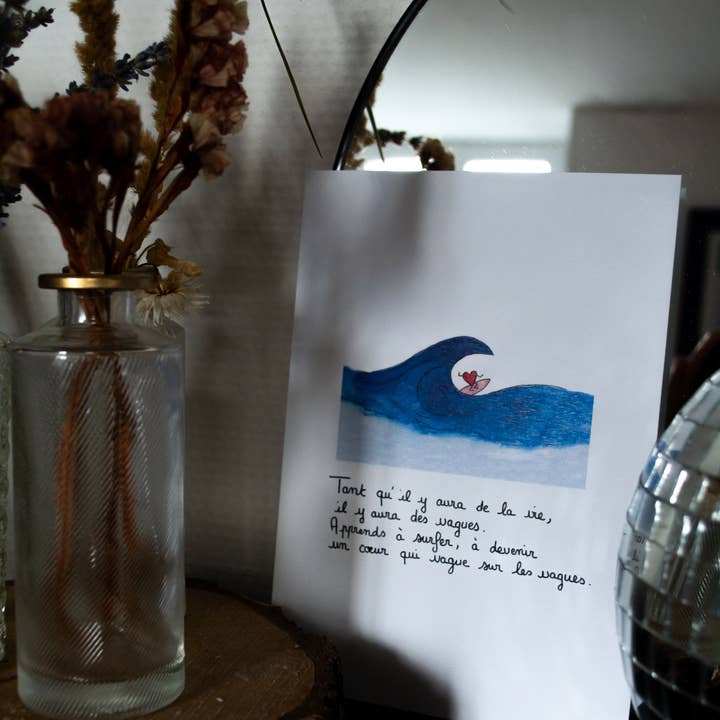 Tant qu'il y aura de la vie,
il y aura des vagues.
Apprends à surfer, à devenir
un cœur qui vague sur les vagues.